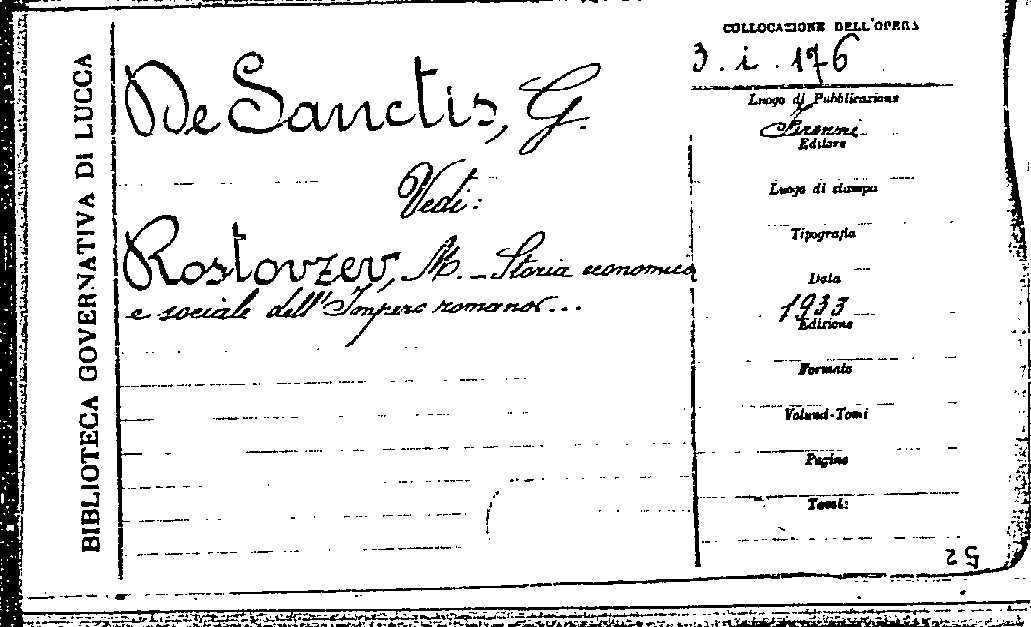 BIBLIOTECA GOVERNATIVA DI LUCCA
De Sanctis, G.
Vedi:
Rostovzev, M. - Storia economica
e sociale dell'Impero romano...
COLLOCAZIONE DELL'OPERA
3. i. 176
Luogo di Pubblicazione
Firenze
Editore
Luogo di stampa
Tipografia
Data
1933
Edizione
Formato
Volumi-Tomi
Pagine
Tomi:
52